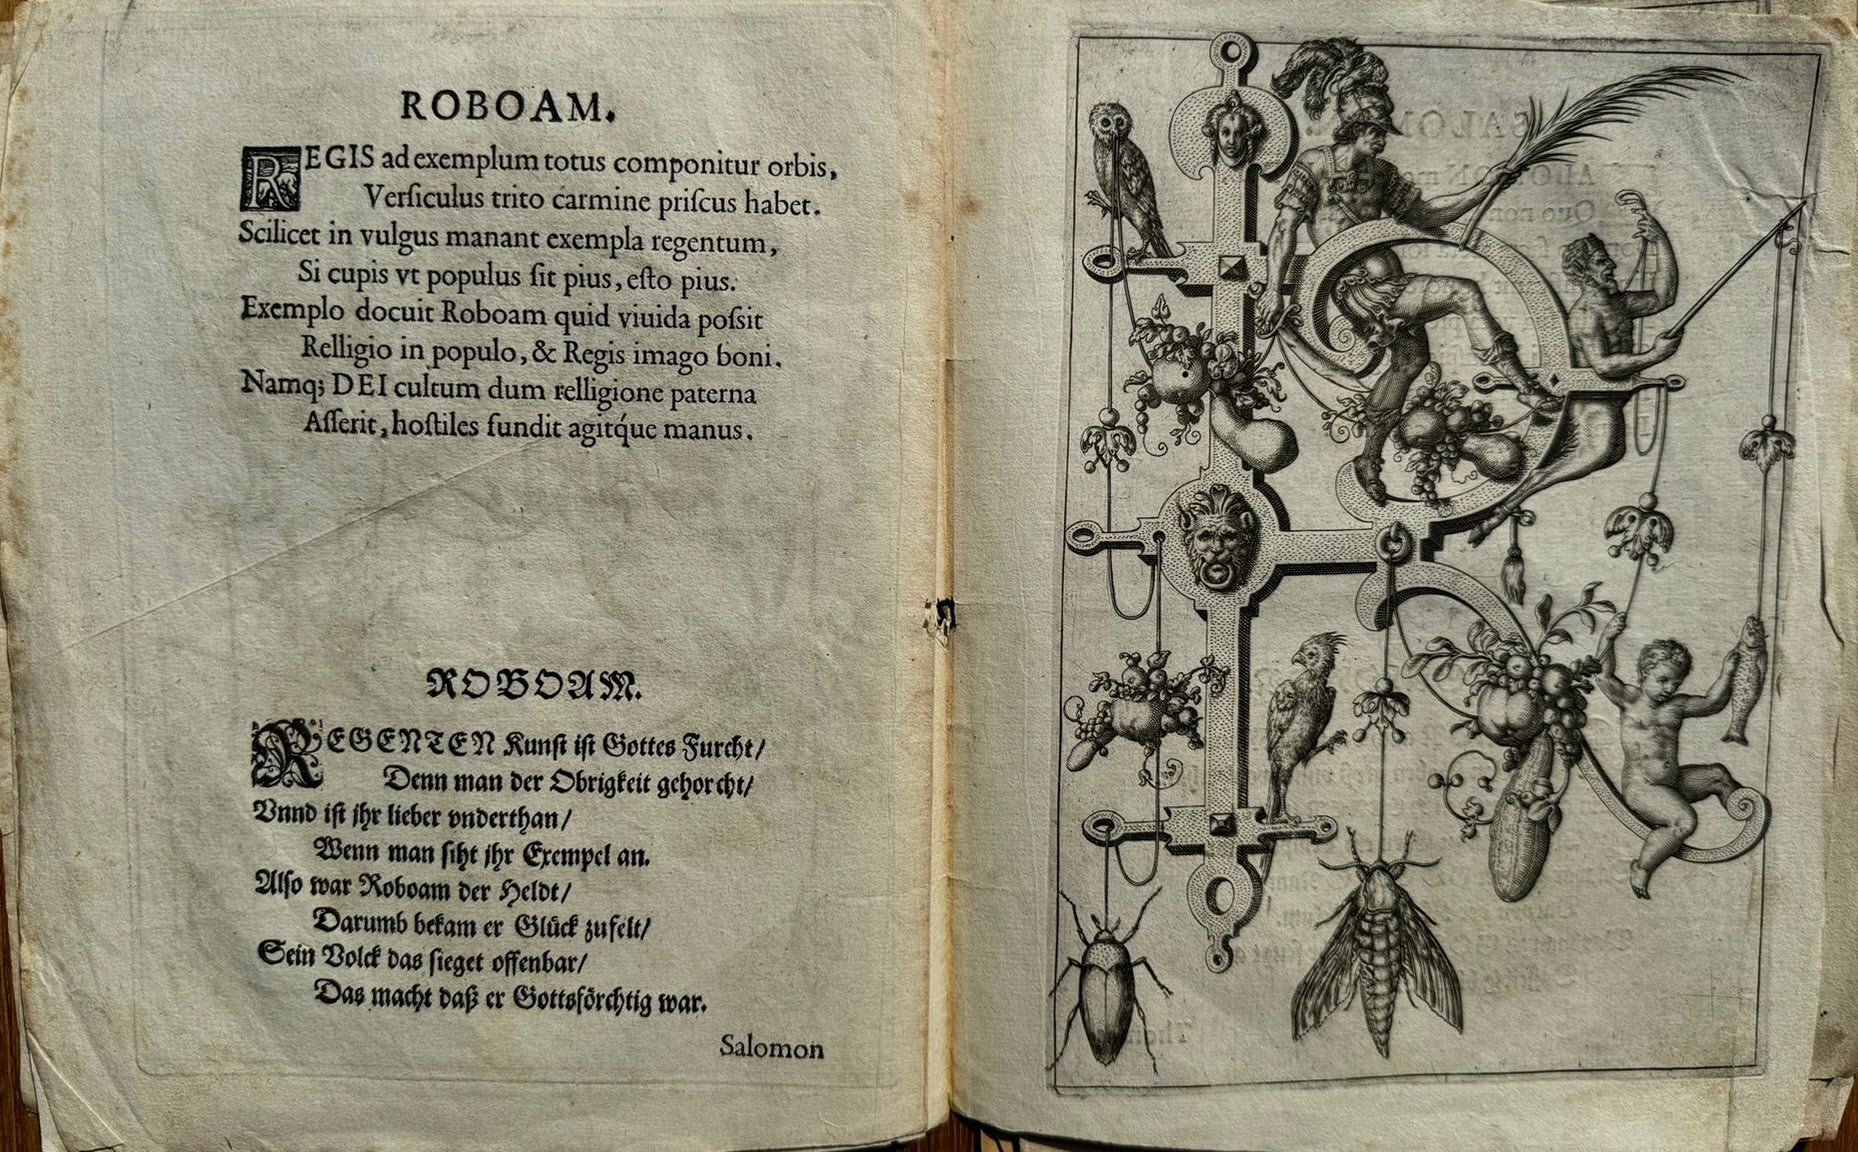 ROBOAM.
REGIS ad exemplum totus componitur orbis,
Verſiculus trito carmine priſcus habet.
Scilicet in vulgus manant exempla regentum,
Si cupis vt populus ſit pius, eſto pius.
Exemplo docuit Roboam quid viuida poſsit
Relligio in populo, & Regis imago boni.
Namq; DEI cultum dum relligione paterna
Aſſerit, hoſtiles fundit agitq́ue manus.
ROBOAM.
REGENTEN Kunſt iſt Gottes Furcht/
Denn man der Obrigkeit gehorcht/
Vnnd iſt jhr lieber vnderthan/
Wenn man ſiht jhr Exempel an.
Alſo war Roboam der Heldt/
Darumb bekam er Glück zufelt/
Sein Volck das ſieget offenbar/
Das macht daß er Gottsförchtig war.
Salomon
SALOM